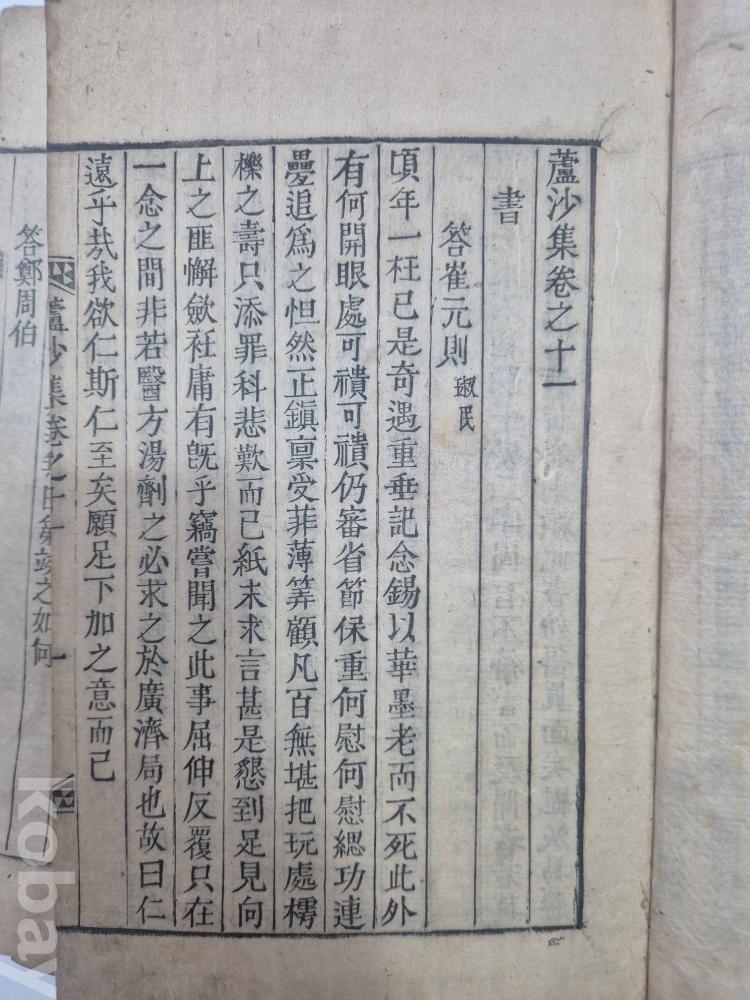 蘆沙集卷之十一
書
答崔元則 琡民
頃年一枉已是奇遇重垂記念錫以華墨老而不死此外
有何開眼處可襀可襀仍審省節保重何慰何慰緦功連
疊追爲之怛然正鎭稟受菲薄筭顧凡百無堪把玩處樗
櫟之壽只添罪科悲歎而已紙末求言甚是懇到足見向
上之匪懈歛衽庸有旣乎竊嘗聞之此事屈伸反覆只在
一念之間非若醫方湯劑之必求之於廣濟局也故曰仁
遠乎哉我欲仁斯仁至矣願足下加之意而已
蘆沙集卷之十一 一
答鄭周伯
之如何
kobay